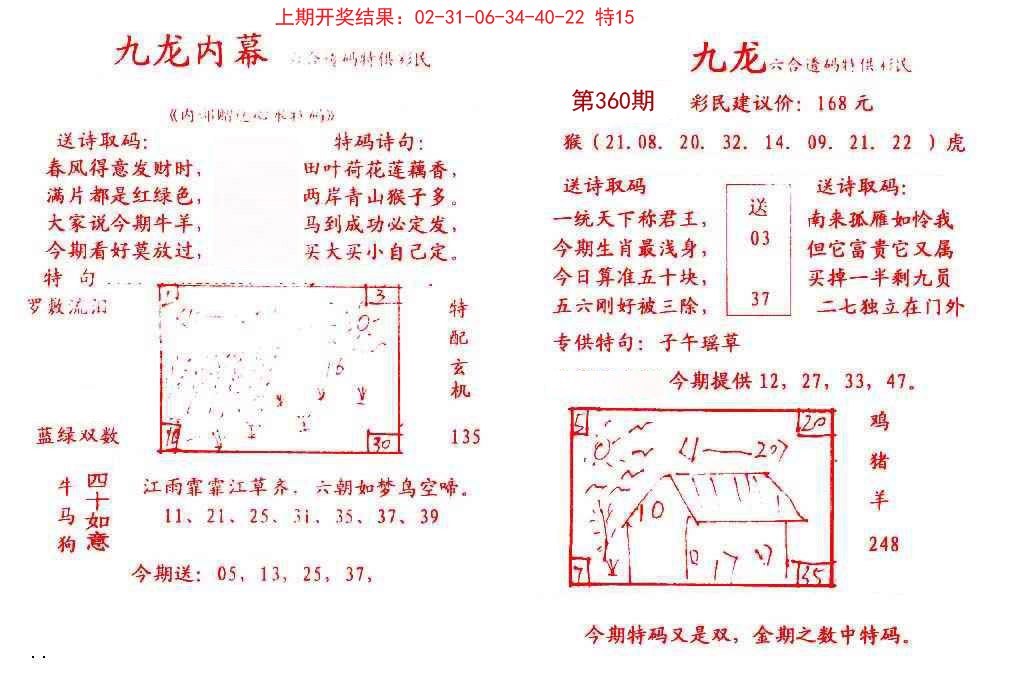 上期开奖结果：02-31-06-34-40-22 特15
九龙内幕 六合透码特供彩民
送诗取码：
春风得意发财时，
满片都是红绿色，
大家说今期牛羊，
今期看好莫放过，
特码诗句：
田叶荷花莲藕香，
两岸青山猴子多。
马到成功必定发，
买大买小自己定。
特 句
1
3
0
16
30
特配玄机
135
蓝绿双数
牛马狗
四十如意
江雨霏霏江草齐．六朝如梦鸟空啼。
11、21、25、31、35、37、39
今期送：05，13，25，37，
九龙六合透码特供彩民
第360期
彩民建议价：168元
猴（21.08．20．32．14．09．21．22 ）虎
送诗取码
一统天下称君王，
今期生肖最浅身，
今日算准五十块，
五六刚好被三除，
送
03
37
送诗取码：
南来孤雁如怜我
但它富贵它又属
买掉一半剩九员
二七独立在门外
专供特句：子午瑶草
今期提供12，27，33，47。
5
20
10
7
35
鸡
猪
羊
248
今期特码又是双，金期之数中特码。